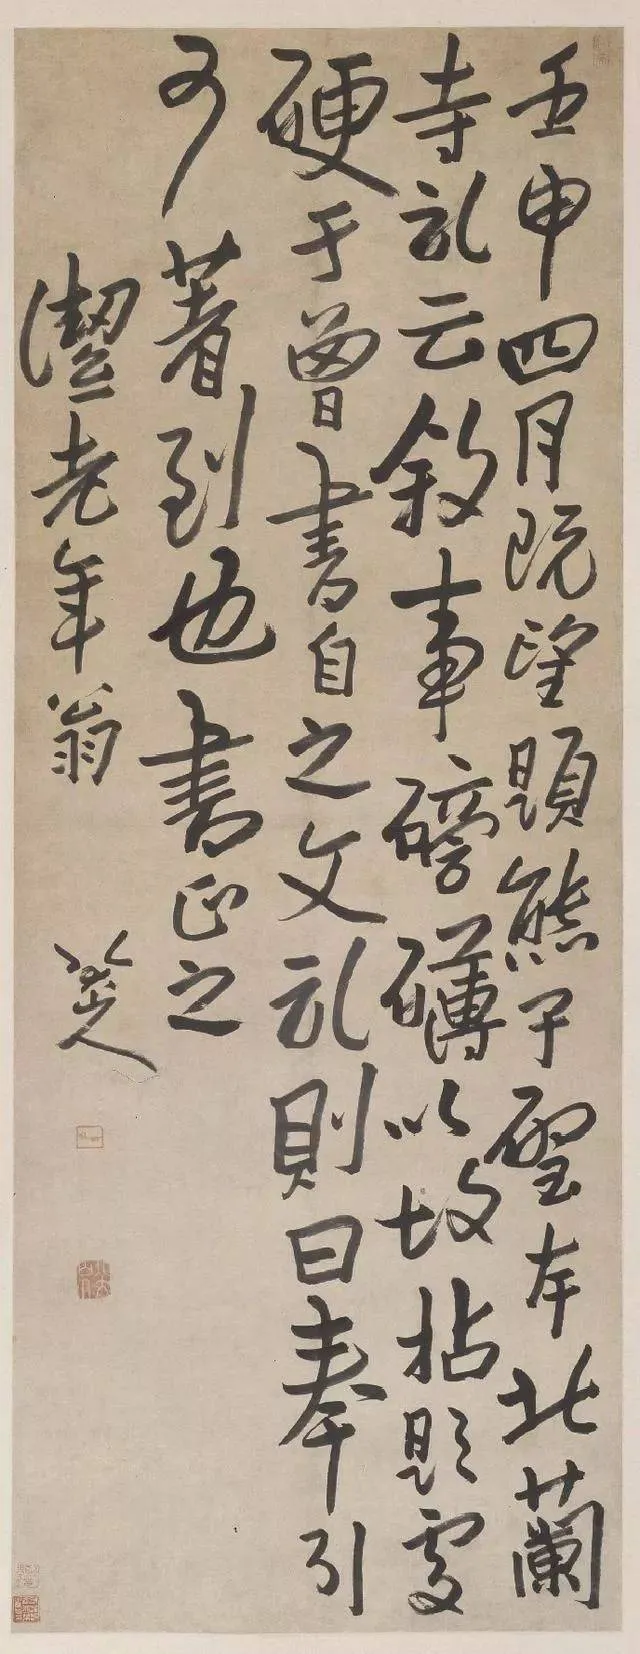 壬申四月既望題熊子堅本北蘭
寺記云敘事磅礴以故拈題處
硬于曾書自之文記則曰奉引
可著到也書正之
老年翁
八大山人